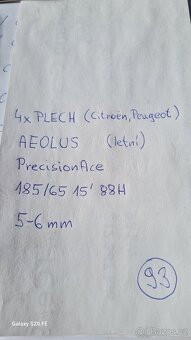 4x PLECH (Citroën, Peugeot)
AEOLUS (letní)
PrecisionAce
185/65 15" 88H
5-6 mm
93
Galaxy S20 FE